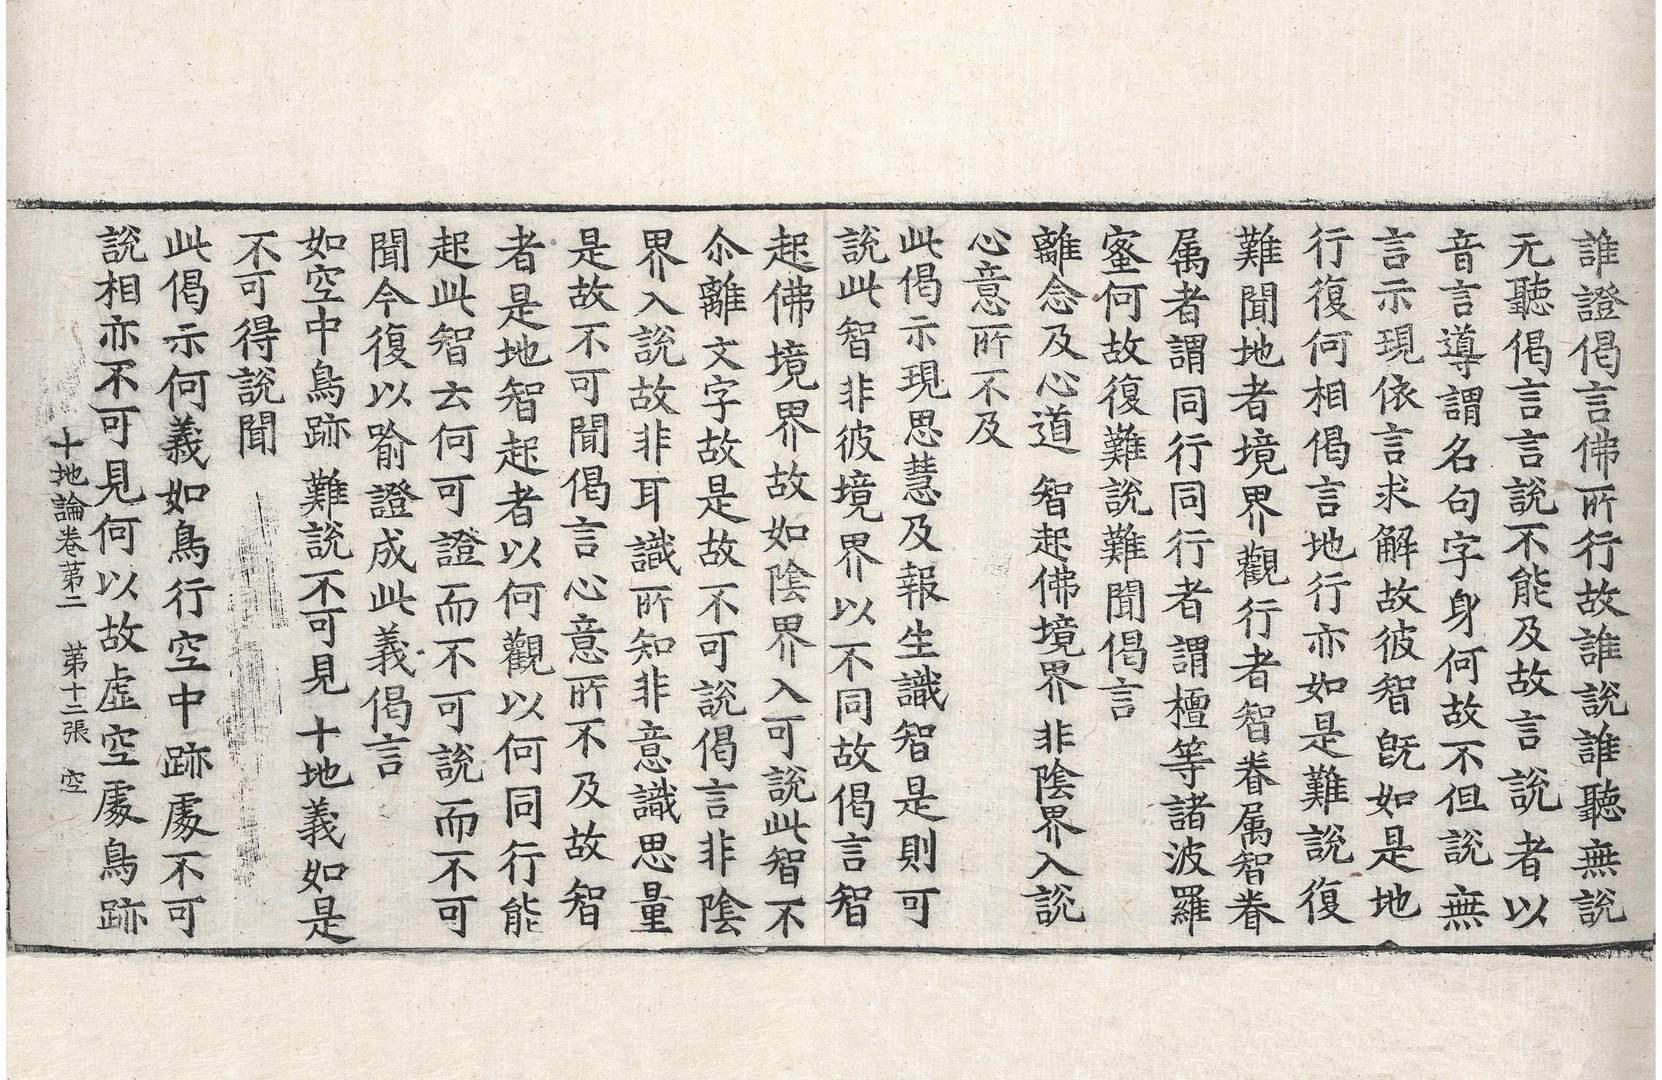 誰證偈言佛所行故誰說誰聽無說
无聽偈言言說不能及故言說者以
音言導謂名句字身何故不但說無
言示現依言求解故彼智旣如是地
行復何相偈言地行亦如是難說復
難聞地者境界觀行者智眷属智眷
属者謂同行同行者謂檀等諸波羅
蜜何故復難說難聞偈言
離念及心道 智起佛境界 非陰界入說
心意所不及
此偈示現思慧及報生識智是則可
說此智非彼境界以不同故偈言智
起佛境界故如陰界入可說此智不
尒離文字故是故不可說偈言非陰
界入說故非耳識所知非意識思量
是故不可聞偈言心意所不及故智
者是地智起者以何觀以何同行能
起此智云何可證而不可說而不可
聞今復以喻證成此義偈言
如空中鳥跡 難說不可見 十地義如是
不可得說聞
此偈示何義如鳥行空中跡處不可
說相亦不可見何以故虛空處鳥跡
十地論卷第二 第十二張 空